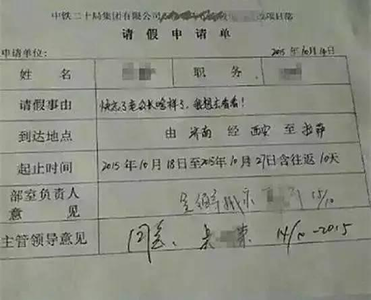 中铁二十局集团有限公司 项目部
请假申请单
申请单位: 2015年10月14日
姓名 职务
请假事由 快忘了老公长啥样了,我想去看看!
到达地点 由 济南 经 西安 至
起止时间 2015年10月18日至2015年10月27日含往返10天
部室负责人意见 15/10
主管领导意见 同意. 14/10-2015